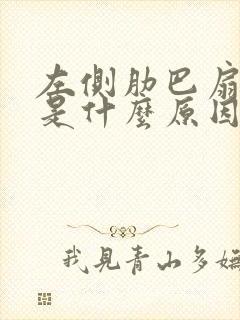 左側肋巴扇
是什麼原因
我見青山多嫵